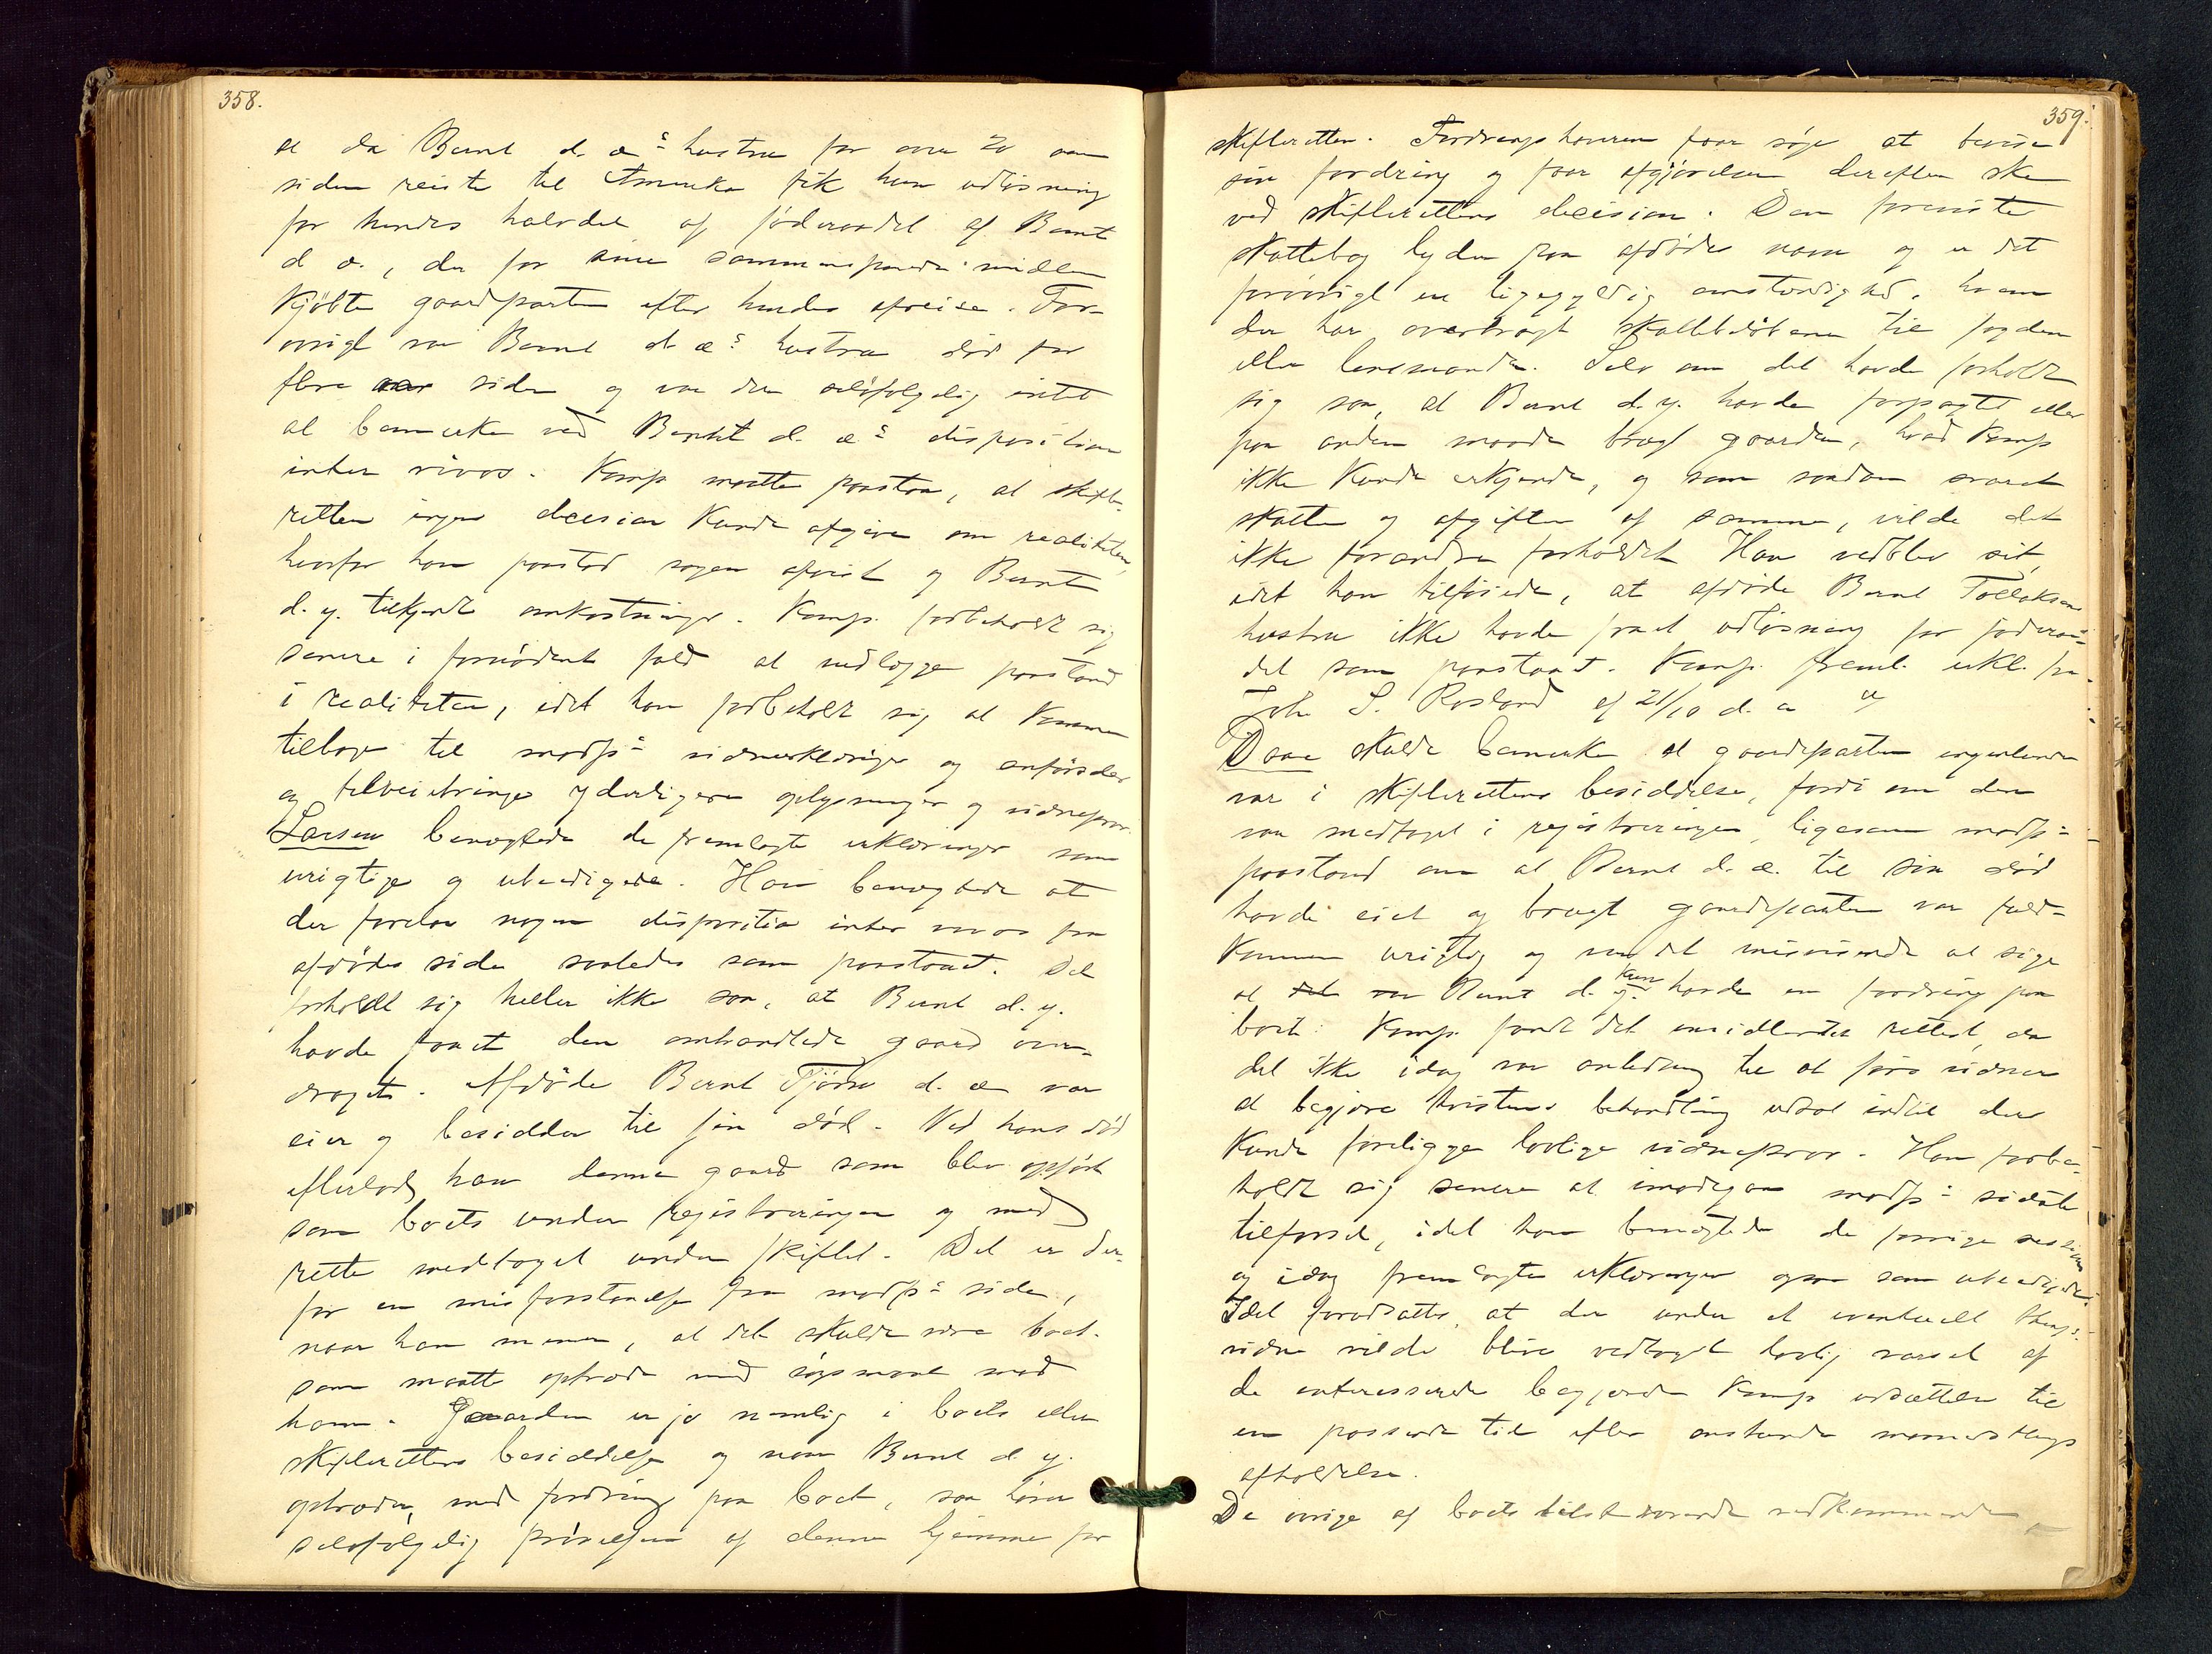 358.
at da Bernt d. æ's hustru for over 20 aar
siden reiste til Amerika fik hun udløsning
for hendes halvdel af føderaadet af Bernt
d. æ., der for sine sammensparede midler
kjøbte gaardparten efter hendes afreise. For-
øvrigt var Bernt d. æ's hustru død for
flere aar siden og var der selvfølgelig intet
at bemerke ved Bernt d. æ's disposition
inter vivos. Komp. maatte paastaa, at skifte-
retten ingen decision kunde afgive om realiteten,
hvorfor han paastod sagen afvist og Bernt
d. y. tilkjendt omkostninger. Komp. forbeholdt sig
senere i fornødent fald at nedlægge paastand
i realiteten, idet han forbeholdt sig at komme
tilbage til modp's vidneerklæringer og anførsler
og tilveiebringe yderligere oplysninger og vidneprov.
Larsen benægtede de fremlagte erklæringer som
urigtige og ubeedigede. Han benægtede at
der forelaa nogen disposition inter vivos fra
afdødes side saaledes som paastaaet. Det
forholdt sig heller ikke saa, at Bernt d. y.
havde faaet den omhandlede gaard over-
draget. Afdøde Bernt Tjørn d. æ var
eier og besidder til sin død. Ved hans død
efterlod han denne gaard som blev opført
som boets under registreringen og med
rette medtaget under skiftet. Det er der-
for en misforstaaelse fra modp's side,
naar han mener, at det skulde være boet
som maatte optræde med søgsmaal mod
ham. Gaarden er jo nemlig i boets eller
skifterettens besiddelse og naar Bernt d. y.
optræder med fordring paa boet, saa hører
selvfølgelig prøvelsen af denne hjemme for
359.
skifteretten. Fordringshaveren faar søge at bevise
sin fordring og faar afgjørelsen derefter ske
ved skifterettens decision. Den foreviste
skattebog lyder paa afdødes navn og er det
forøvrigt en ligegyldig omstændighed, hvem
der har overbragt skattebeløbene til fogden
eller lensmanden. Selv om det havde forholdt
sig saa, at Bernt d. y. havde forpagtet eller
paa anden maade brugt gaarden, hvad komp
ikke kunde erkjende, og som saadan svaret
skatter og afgifter af samme, vilde det
ikke forandre forholdet. Han vedblev sit,
idet han tilføiede, at afdøde Bernt Tollaksens
hustru ikke havde faaet udløsning for føderaa-
det som paastaaet. Komp. freml. erkl. fra
Joh. S. Rosland af 21/10 d. a
Daae skulde bemerke at gaardparten ingenlunde
var i skifterettens besiddelse, fordi om den
var medtaget i registreringen, ligesom modp's
paastand om at Bernt d. æ. til sin død
havde eiet og brugt gaardparten var fuld-
kommen urigtig og var det misvisende at sige
at det var Bernt d. y. kun havde en fordring paa
boet. Komp. fandt det imidlertid rettest, da
det ikke idag var anledning til at føre vidner
at begjære tvistens behandling udsat indtil der
kunde foreligge lovlige vidneprov. Han forbe-
holdt sig senere at imødegaa modp's sidste
tilførsel, idet han benægtede de forrige session
og idag fremlagte erklæringer ogsaa som ubeedigede.
Idet forudsattes, at der under et eventuelt things-
vidne vilde blive vedtaget lovlig varsel af
de interesserede begjærede komp udsættelse til
en passende tid efter anstundende
afholdelse.
De øvrige af boets tilstedeværende vedkommende